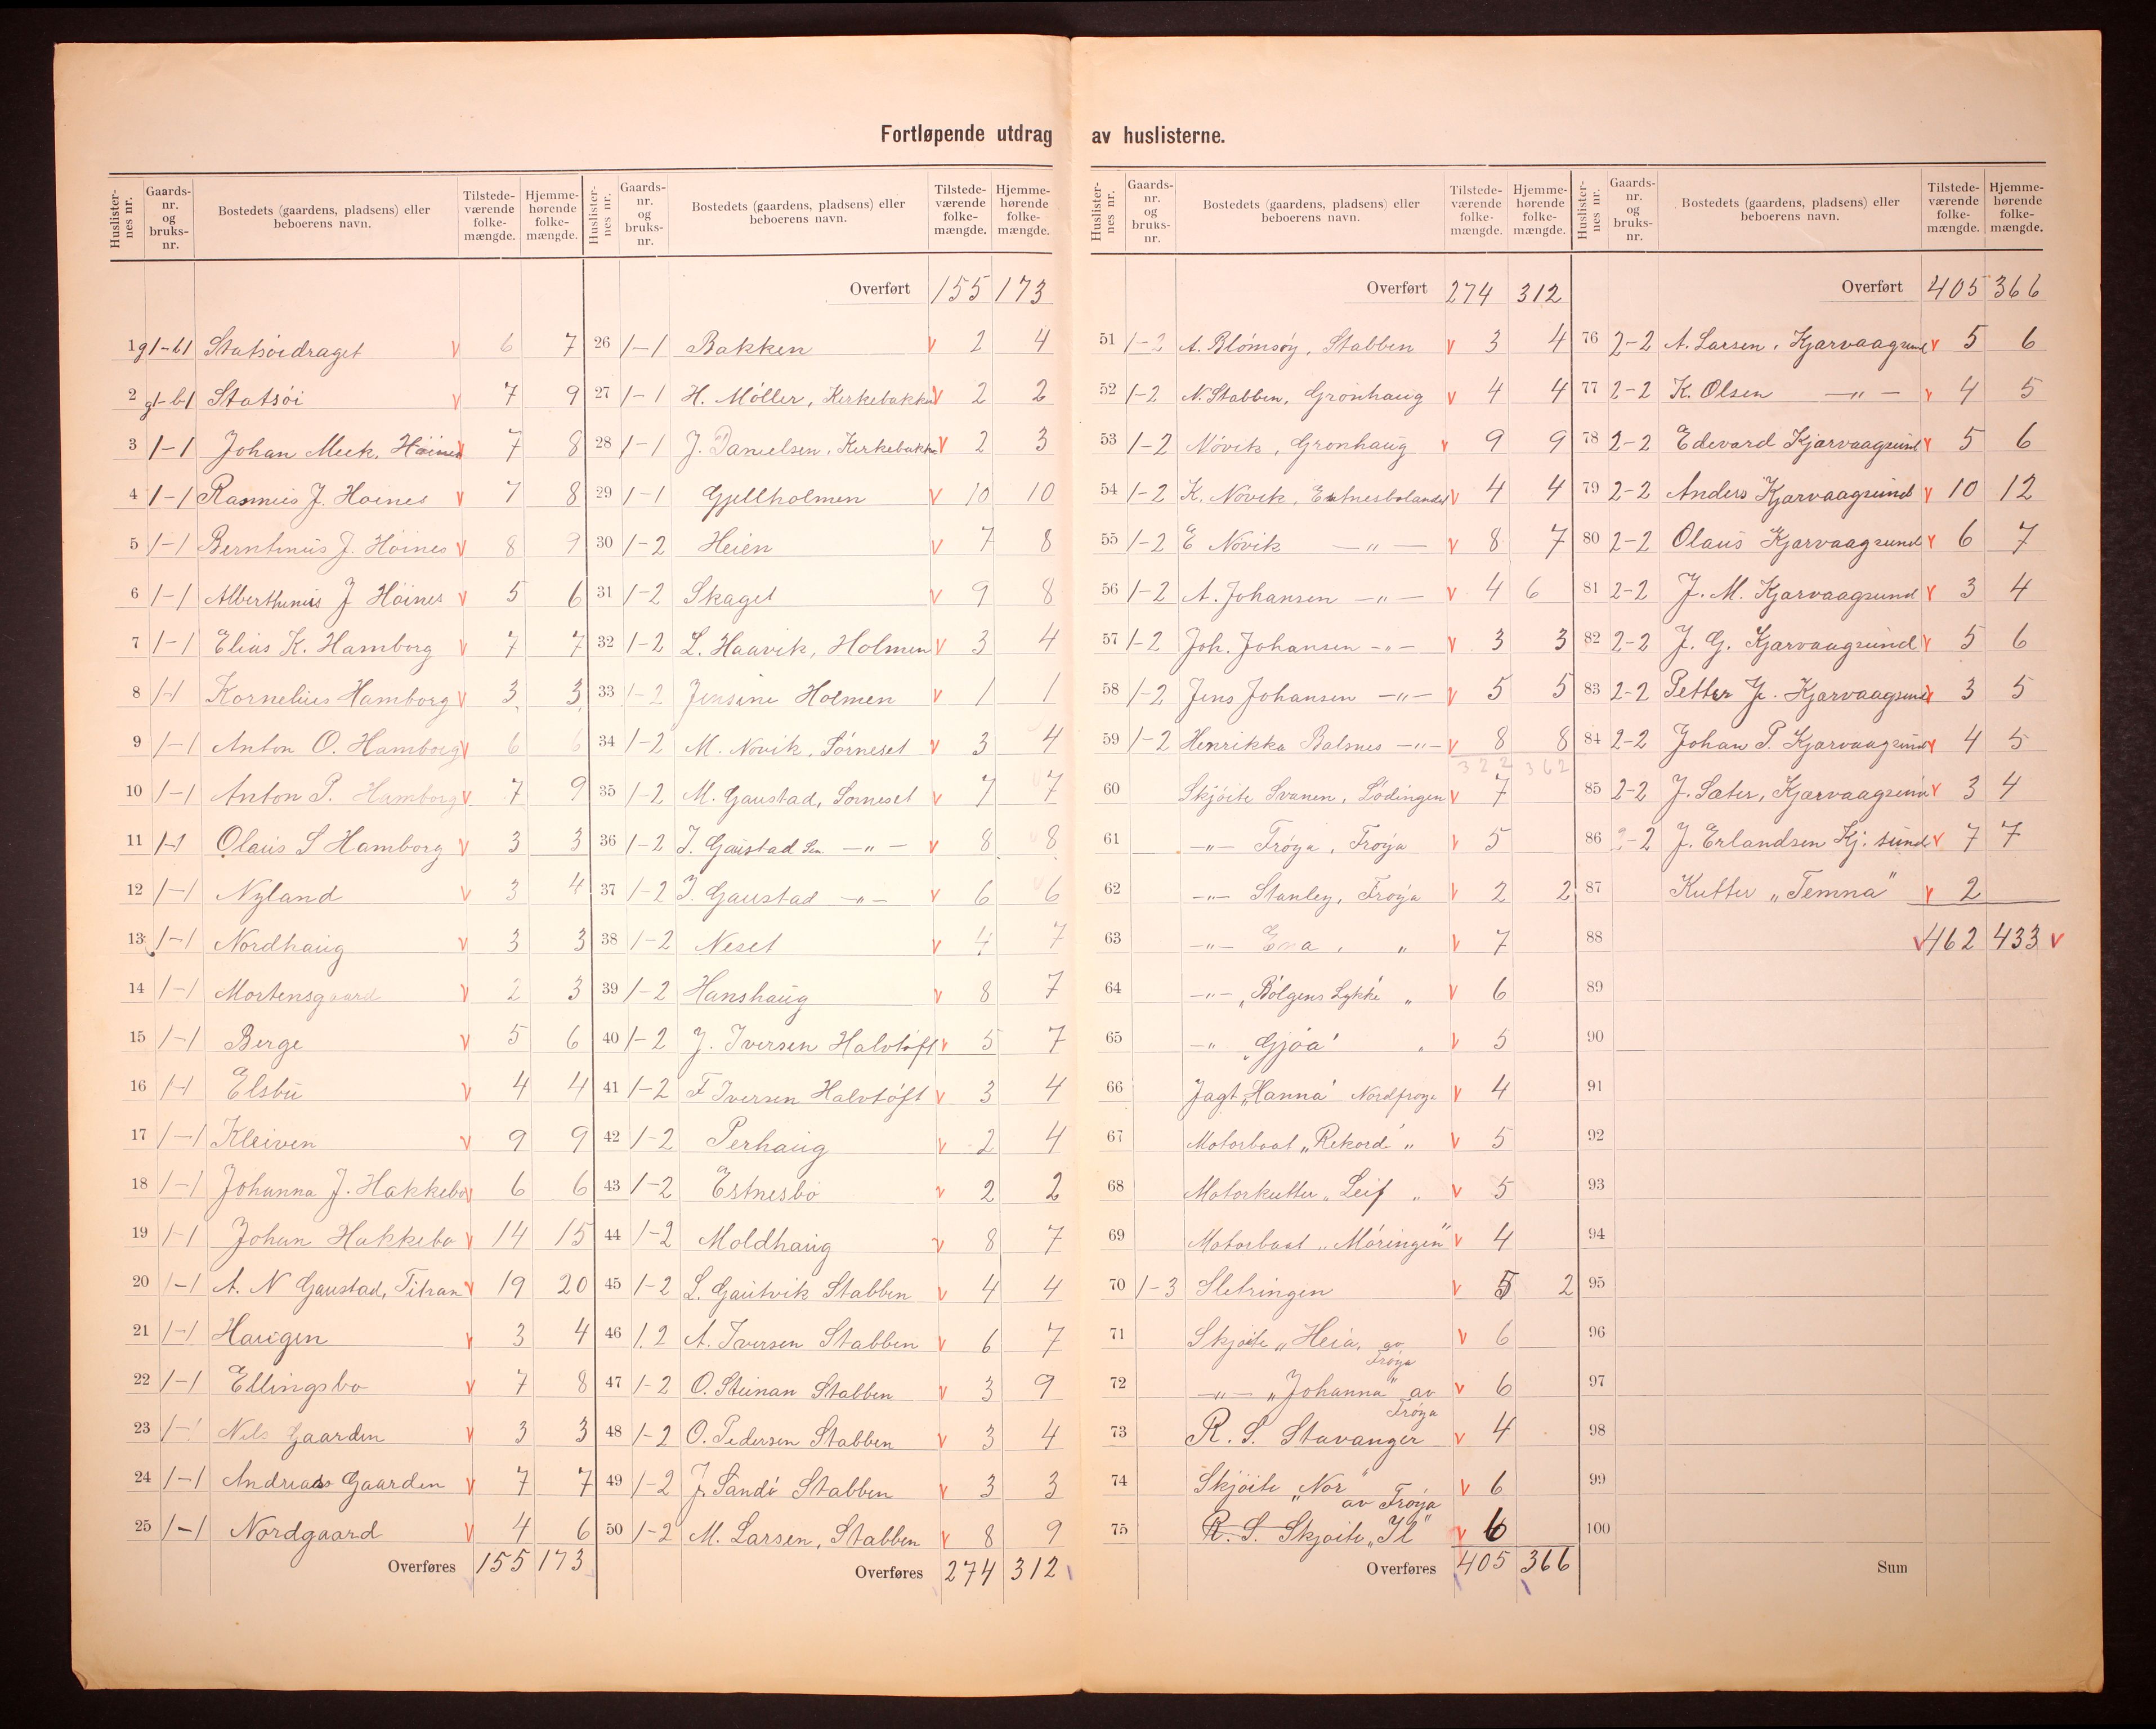 Fortløpende utdrag av huslisterne.
Huslisternes nr. Gaards-nr. og bruks-nr. Bostedets (gaardens, pladsens) eller beboerens navn. Tilstedeværende folkemængde. Hjemmehørende folkemængde.
1 g1-b1 Statsöidraget v 6 7
2 g1-b1 Statsöi v 7 9
3 1-1 Johan Meek, Höines v 7 8
4 1-1 Rasmus J. Hoines v 7 8
5 1-1 Berntinus J. Höines v 8 9
6 1-1 Alberthinius J Höines v 5 6
7 1-1 Elias K. Hamborg v 7 7
8 1-1 Kornelius Hamborg v 3 3
9 1-1 Anton O. Hamborg v 6 6
10 1-1 Anton P. Hamborg v 7 9
11 1-1 Olaus S Hamborg v 3 3
12 1-1 Nyland v 3 4
13 1-1 Nordhaug v 3 3
14 1-1 Mortensgaard v 2 3
15 1-1 Berge v 5 6
16 1-1 Elsbu v 4 4
17 1-1 Kleiven v 9 9
18 1-1 Johanna J. Hakkebo v 6 6
19 1-1 Johan Hakkebo v 14 15
20 1-1 A. N Gaustad, Titran v 19 20
21 1-1 Haugen v 3 4
22 1-1 Ellingsbo v 7 8
23 1-1 Nils Gaarden v 3 3
24 1-1 Andreas Gaarden v 7 7
25 1-1 Nordgaard v 4 6
Overføres 155 173
Huslisternes nr. Gaards-nr. og bruks-nr. Bostedets (gaardens, pladsens) eller beboerens navn. Tilstedeværende folkemængde. Hjemmehørende folkemængde.
Overført 155 173
26 1-1 Bakken v 2 4
27 1-1 H. Möller, Kirkebakken v 2 2
28 1-1 J. Danielsen, Kirkebakken v 2 3
29 1-1 Gjellholmen v 10 10
30 1-2 Heien v 7 8
31 1-2 Skaget v 9 8
32 1-2 L. Haavik, Holmen v 3 4
33 1-2 Jensine Holmen v 1 1
34 1-2 M. Novik, Sörneset v 3 4
35 1-2 M. Gaustad, Sorneset v 7 7
36 1-2 J. Gaustad Sen. -"- v 8 8
37 1-2 J. Gaustad -"- v 6 6
38 1-2 Neset v 4 7
39 1-2 Hanshaug v 8 7
40 1-2 J. Iversen Halvtöft v 5 7
41 1-2 F Iversen Halvtöft v 3 4
42 1-2 Perhaug v 2 4
43 1-2 Estnesbo v 2 2
44 1-2 Moldhaug v 8 7
45 1-2 L. Gautvik Stabben v 4 4
46 1.2 A. Iversen Stabben v 6 7
47 1-2 O. Steinan Stabben v 3 9
48 1-2 O. Pedersen Stabben v 3 4
49 1-2 J. Sandö Stabben v 3 3
50 1-2 M. Larsen, Stabben v 8 9
Overføres 274 312
Huslisternes nr. Gaards-nr. og bruks-nr. Bostedets (gaardens, pladsens) eller beboerens navn. Tilstedeværende folkemængde. Hjemmehørende folkemængde.
Overført 274 312
51 1-2 A. Blömsöy, Stabben v 3 4
52 1-2 N. Stabben, Gronhaug v 4 4
53 1-2 Növik, Gronhaug v 9 9
54 1-2 K. Novik, Estnesbolandet v 4 4
55 1-2 E Novik -"- v 8 7
56 1-2 A. Johansen -"- v 4 6
57 1-2 Joh. Johansen -"- v 3 3
58 1-2 Jens Johansen -"- v 5 5
59 1-2 Henrikka Balsnes -"- v 8 8
322 362
60 Skjöite Svanen, Lödingen v 7
61 -"- Fröya, Fröya v 5
62 -"- Stanley, Fröya v 2 2
63 -"- Eva, " v 7
64 -"- "Bölgens Lykke" " v 6
65 -" "Gjöa" " v 5
66 Jagt "Hanna" Nordfroya v 4
67 Motorbaat "Rekord" " v 5
68 Motorkutter "Leif " v 5
69 Motorbaat "Möringen" v 4
70 1-3 Sletringen v 5 2
71 Skjöite "Heia, av Fröya v 6
72 -"- "Johanna" av Fröya v 6
73 R. S. Stavanger v 4
74 Skjöite "Nor" av Fröya v 6
75 R. S. Skjoite "Il" v 6
Overføres 405 366
Huslisternes nr. Gaards-nr. og bruks-nr. Bostedets (gaardens, pladsens) eller beboerens navn. Tilstedeværende folkemængde. Hjemmehørende folkemængde.
Overført 405 366
76 2-2 A. Larsen, Kjarvaagsund v 5 6
77 2-2 K. Olsen -"- v 4 5
78 2-2 Edevard Kjarvaagsund v 5 6
79 2-2 Anders Kjarvaagsund v 10 12
80 2-2 Olaus Kjarvaagsund v 6 7
81 2-2 J. M. Kjarvaagsund v 3 4
82 2-2 J. G. Kjarvaagsund v 5 6
83 2-2 Petter J. Kjarvaagsund v 3 5
84 2-2 Johan P. Kjarvaagsund v 4 5
85 2-2 J. Sater, Kjarvaagsund v 3 4
86 2-2 J. Erlandsen Kj. sund v 7 7
87 Kutter "Temna" v 2
88 v 462 433 v
89
90
91
92
93
94
95
96
97
98
99
100
Sum